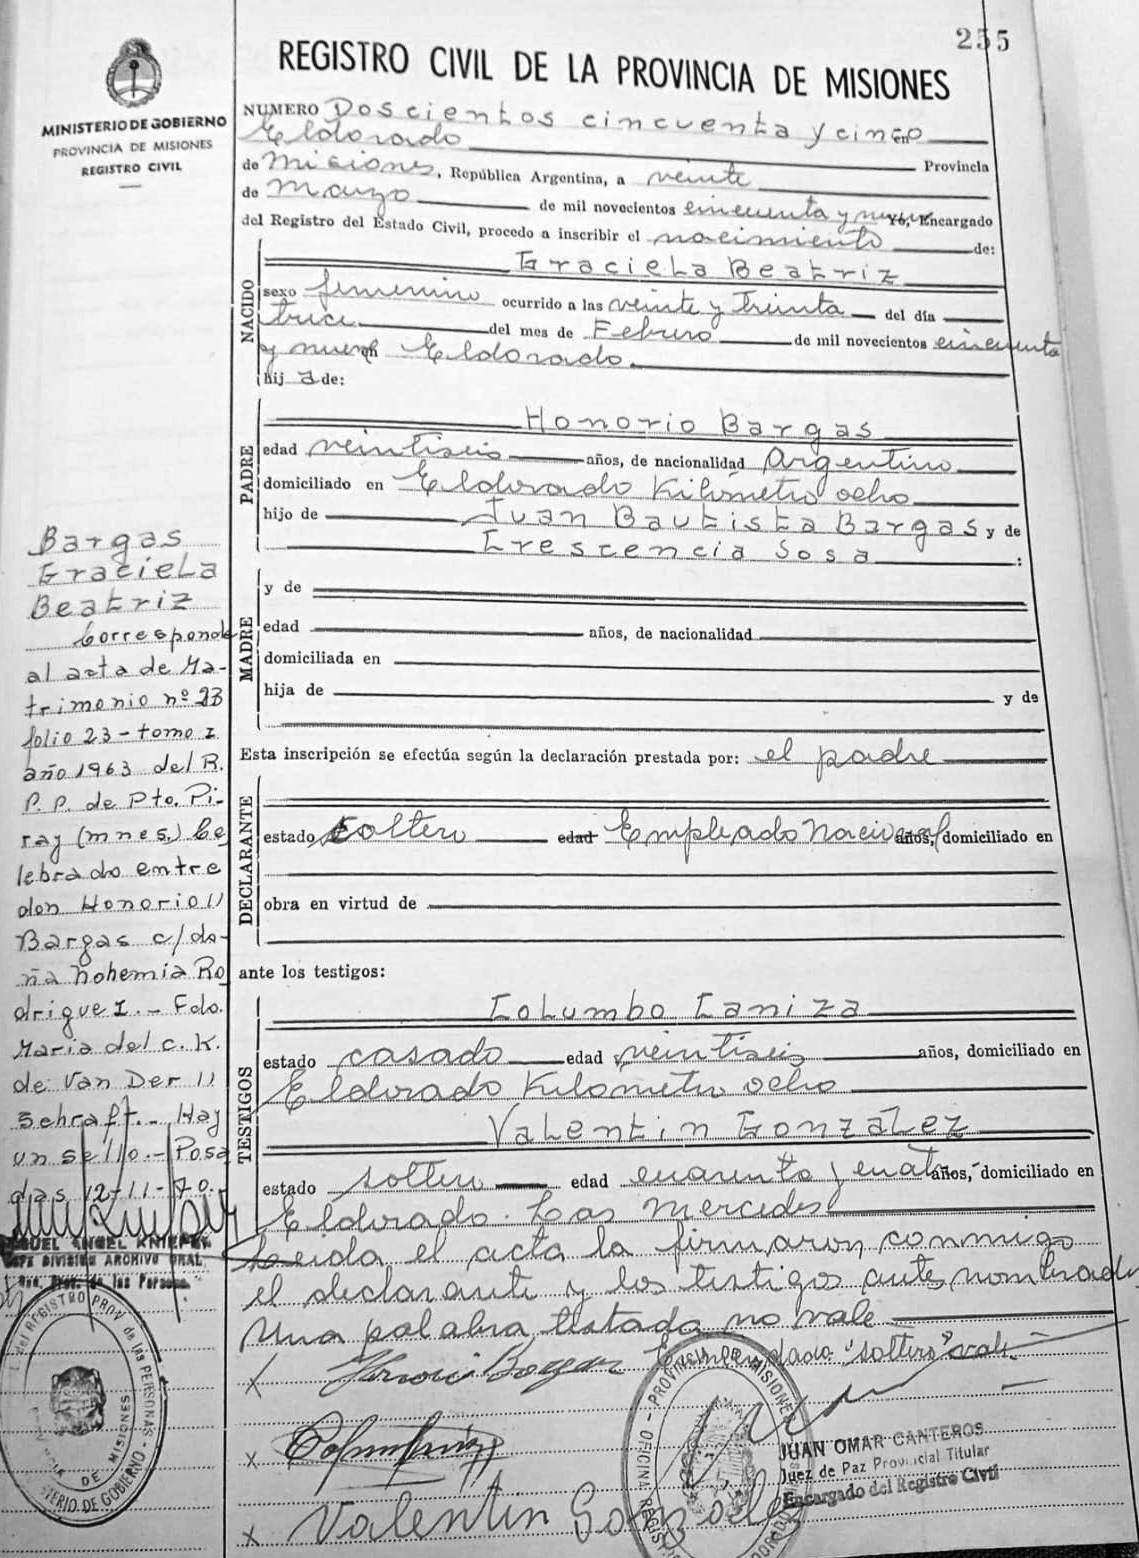 255
REGISTRO CIVIL DE LA PROVINCIA DE MISIONES
MINISTERIO DE GOBIERNO
PROVINCIA DE MISIONES
REGISTRO CIVIL
NUMERO Doscientos cincuenta y cinco en
Eldorado Provincia
de Misiones, República Argentina, a veinte
de Marzo de mil novecientos cincuenta y nueve Yo, Encargado
del Registro del Estado Civil, procedo a inscribir el nacimiento de:
NACIDO
Graciela Beatriz
sexo femenino ocurrido a las veinte y treinta del día
trece del mes de Febrero de mil novecientos cincuenta
y nueve en Eldorado.
hij a de:
PADRE
Honorio Bargas
edad veintiseis años, de nacionalidad Argentino
domiciliado en Eldorado Kilómetro ocho
hijo de Juan Bautista Bargas y de
Crescencia Sosa :
MADRE
y de
edad años, de nacionalidad
domiciliada en
hija de y de
Esta inscripción se efectúa según la declaración prestada por: el padre
DECLARANTE
estado soltero edad Empleado Nacional años, domiciliado en
obra en virtud de
ante los testigos:
TESTIGOS
Columbo Caniza
estado casado edad veintiseis años, domiciliado en
Eldorado Kilometro ocho
Valentin Gonzalez
estado soltero edad cuarenta y cuat años, domiciliado en
Eldorado. Las Mercedes
Leida el acta la firmaron conmigo
el declarante y los testigos antes nombrados
Una palabra testada no vale
Enmendado "soltero" vale.
X Honorio Bargas
X
X Valentin Gonzalez
JUAN OMAR CANTEROS
Juez de Paz Provincial Titular
Encargado del Registro Civil
PROVINCIA DE MISIONES
OFICINA REGISTRO
Bargas
Graciela
Beatriz
Corresponde
al acta de Ma-
trimonio nº 23
folio 23 - tomo I
año 1963 del R.
P.P. de Pto. Pi-
ray (mnes.) Ce
lebrado entre
don Honorio
Bargas c/do-
ña Nohemia Ro
driguez.- Fdo.
Maria del C. K.
de Van Der
Schraft.- Hay
un sello.- Posa
das 12-11-70.
ANGEL
DIVISION ARCHIVO GRAL.
de las Personas
del REGISTRO PROV. de las PERSONAS
DE MISIONES
MINISTERIO DE GOBIERNO